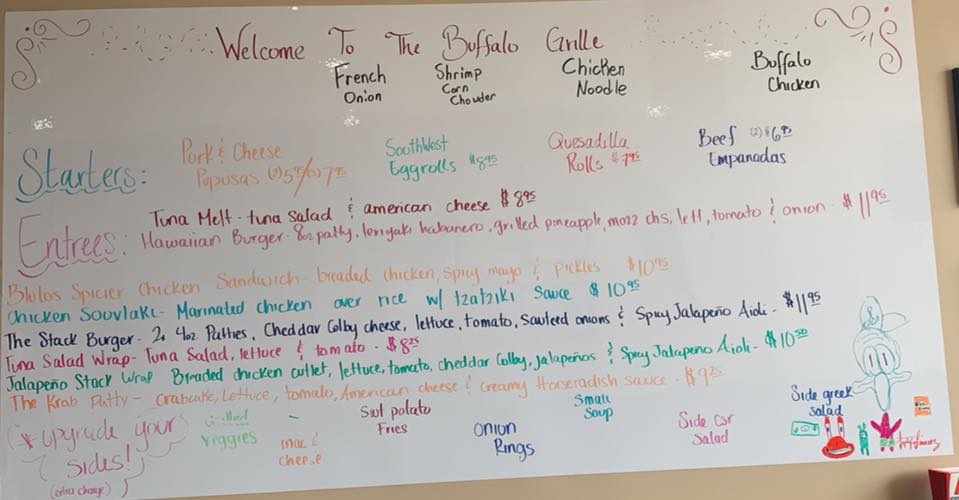 Welcome To The Buffalo Grille
French Onion
Shrimp Corn Chowder
Chicken Noodle
Buffalo Chicken
Starters:
Pork & Cheese
Pupusas (2) 5⁹⁵/(3) 7⁹⁵
SouthWest
Eggrolls $8⁹⁵
Quesadilla
Rolls $7⁹⁵
Beef (2) $6⁹⁵
Empanadas
Entrees:
Tuna Melt - tuna salad & american cheese $8⁹⁵
Hawaiian Burger - 8oz patty, teriyaki habanero, grilled pineapple, mozz chs, lett, tomato & onion - $11⁹⁵
Blutos Spicier Chicken Sandwich - breaded chicken, spicy mayo & pickles $10⁹⁵
Chicken Souvlaki - Marinated chicken over rice w/ tzatziki sauce $10⁹⁵
The Stack Burger - 2x 4oz. Patties, Cheddar Colby cheese, lettuce, tomato, sauteed onions & Spicy Jalapeño Aioli - $11⁹⁵
Tuna Salad Wrap - Tuna Salad, lettuce & tomato - $8²⁵
Jalapeño Stack Wrap Breaded chicken cutlet, lettuce, tomato, cheddar Colby, jalapeños & Spicy Jalapeño Aioli - $10⁵⁰
The Krab Patty - crabcake, Lettuce, tomato, American cheese & creamy Horseradish sauce - $9²⁵
* upgrade your
sides!
(extra charge)
Grilled
Veggies
mac &
cheese
Swt potato
Fries
Onion
Rings
Small
Soup
Side csr
Salad
Side greek
salad